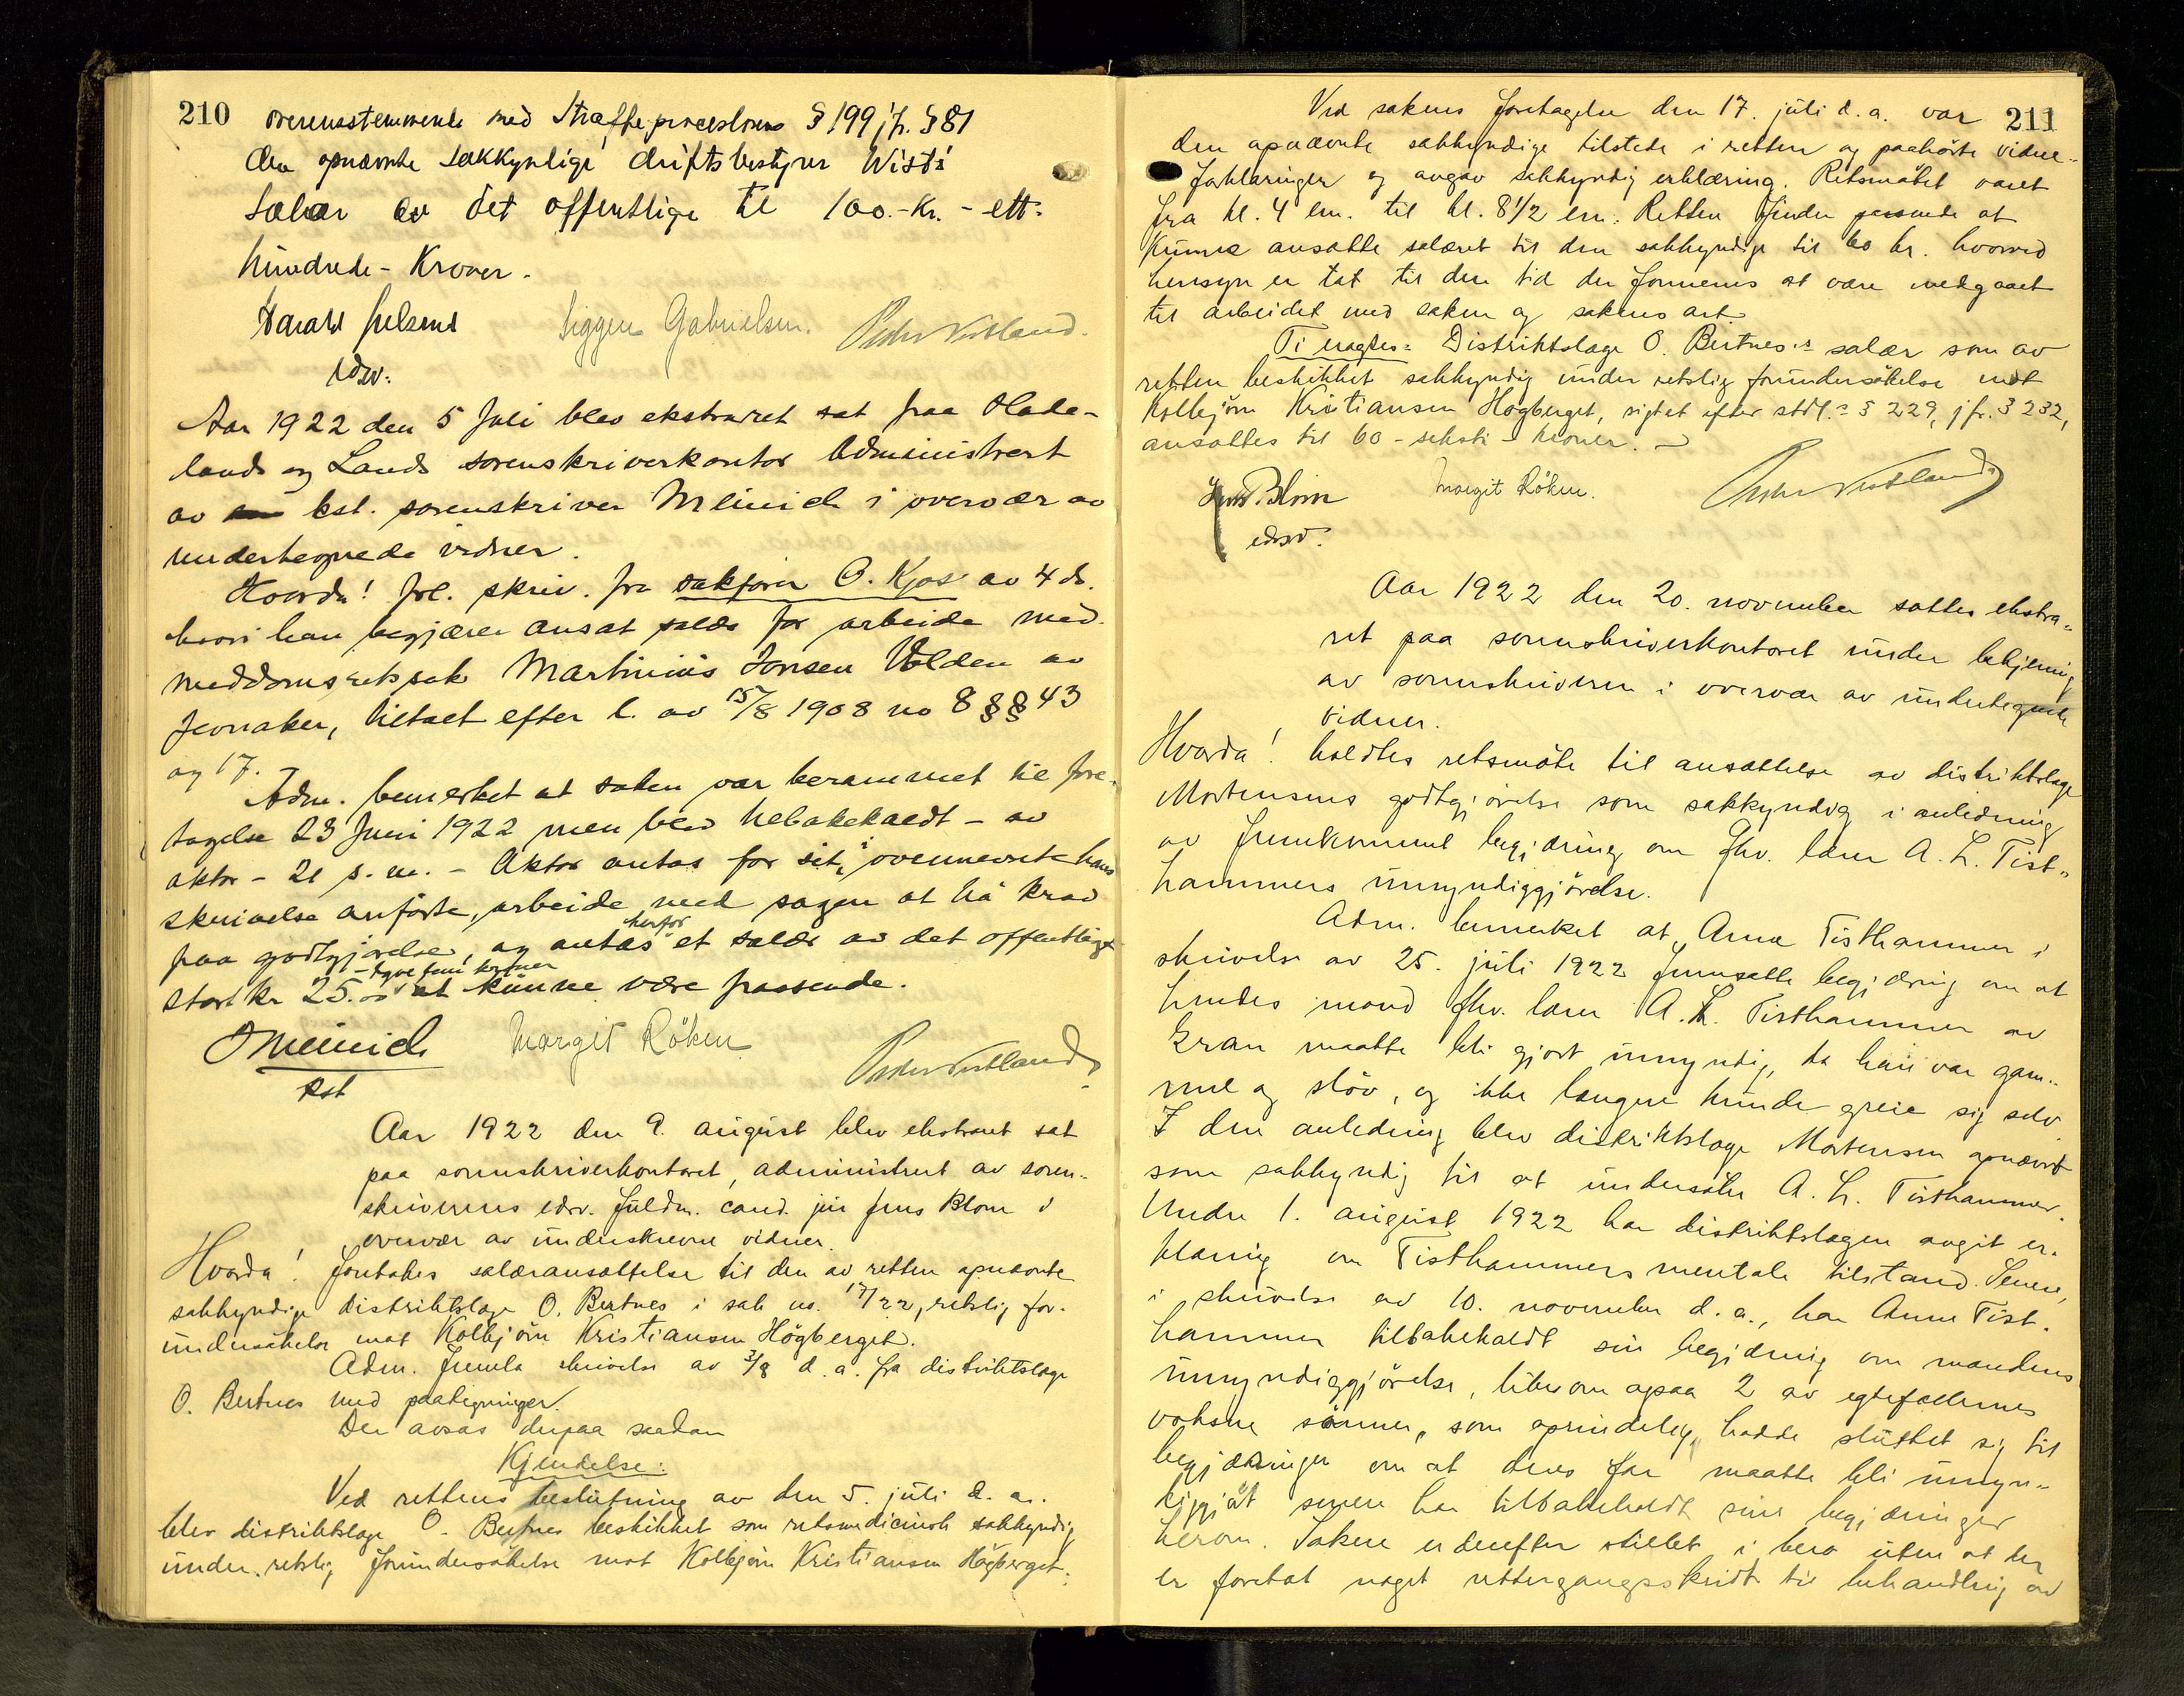 210
overensstemmende med Straffeproceslovens § 199 jfr. § 81
den opnævnte sakkyndige driftsbestyrer Wist's
Salær av det offentlige til 100.- Kr. - ett-
hundrede - Kroner.
Harald Siggen Gabrielsen. Peder Vestland.
edsv:
Aar 1922 den 5 Juli blev ekstraret sat paa Hade-
lands og Lands sorenskriverkontor administrert
av kst. sorenskriver Meinich i overvær av
undertegnede vidner.
Hvorda! frl. skriv. fra sakfører O. Kjos av 4 ds.
hvori han begjærer ansat salær for arbeide med
meddomsretssak Martinius Jonsen Volden av
Jevnaker, tiltalt efter l. av 15/8 1908 no 8 §§ 43
og 17.
Adm. bemerket at saken var berammet til fore-
tagelse 23 Juni 1922 men blev tilbakekaldt - av
aktor - 21 s. m. - Aktor antas for sit, i ovennevnte hans
skrivelse anførte, arbeide med sagen at ha krav
paa godtgjørelse, og antas herfor et salær av det offentlige
stort kr 25.00 - tyve fem kroner at kunne være passende.
Meinich Margit Röken Peder Vestland
kst
Aar 1922 den 9. august blev ekstraret sat
paa sorenskriverkontoret, administrert av soren-
skriverens edsv. fuldm. cand. jur Jens Blom i
overvær av underskrevne vidner.
Hvorda! foretokes salæransættelse til den av retten opnævnte
sakkyndige distriktslæge O. Bertnes i sak no. 17/22, retslig for-
undersøkelse mot Kolbjörn Kristiansen Högberget.
Adm. fremla skrivelse av 3/8 d. a. fra distriktslæge
O. Bertnes med paategninger.
Der avsas derpaa saadan
Kjendelse:
Ved rettens beslutning av den 5. juli d. a.
blev distriktslæge O. Bertnes beskikket som retsmedicinsk sakkyndig
under retslig forundersökelse mot Kolbjörn Kristiansen Högberget.
211
Ved sakens foretagelse den 17. juli d. a. var
den opnævnte sakkyndige tilstede i retten og paahörte vidne-
forklaringer og avgav sakkyndig erklæring. Retsmötet varet
fra kl. 4 em. til kl. 8 1/2 em. Retten finder passende at
kunne ansætte salæret til den sakkyndige til 60 kr. hvorved
hensyn er tat til den tid der formenes at være medgaaet
til arbeidet med saken og sakens art.
Ti eragtes: Distriktslæge O. Bertnes's salær som av
retten beskikket sakkyndig under retslig forundersökelse mot
Kolbjörn Kristiansen Högberget, sigtet efter strfl.s § 229, jfr. § 232,
ansættes til 60 - seksti - kroner. -
Jens Blom Margit Röken. Peder Vestland
edsv.
Aar 1922 den 20. november sattes ekstra-
ret paa sorenskriverkontoret under betjening
av sorenskriveren i overvær av undertegnede
vidner.
Hvorda! holdtes retsmöte til ansættelse av distriktslæge
Mortensens godtgjörelse som sakkyndig i anledning
av fremkommet begjæring om fhv. lærer A. L. Tist-
hammers umyndiggjörelse.
Adm. bemerket at Anne Tisthammer i
skrivelse av 25. juli 1922 fremsatte begjæring om at
hendes mand fhv. lærer A. L. Tisthammer av
Gran maatte bli gjort umyndig, da han var gam-
mel og slöv, og ikke længere kunde greie sig selv.
I den anledning blev distriktslæge Mortensen opnævnt
som sakkyndig til at undersöke A. L. Tisthammer.
Under 1. august 1922 har distriktslægen avgit er-
klæring om Tisthammers mentale tilstand. Senere,
i skrivelse av 10. november d. a., har Anne Tist-
hammer tilbakekaldt sin begjæring om mandens
umyndiggjörelse, likesom ogsaa 2 av egtefællernes
voksne sönner, som oprindelig hadde sluttet sig til
begjæringen om at deres far maatte bli umyn-
diggjort senere har tilbakekaldt sine begjæringer
herom. Saken er derefter stillet i bero uten at der
er foretat noget rettergangsskridt til behandling av